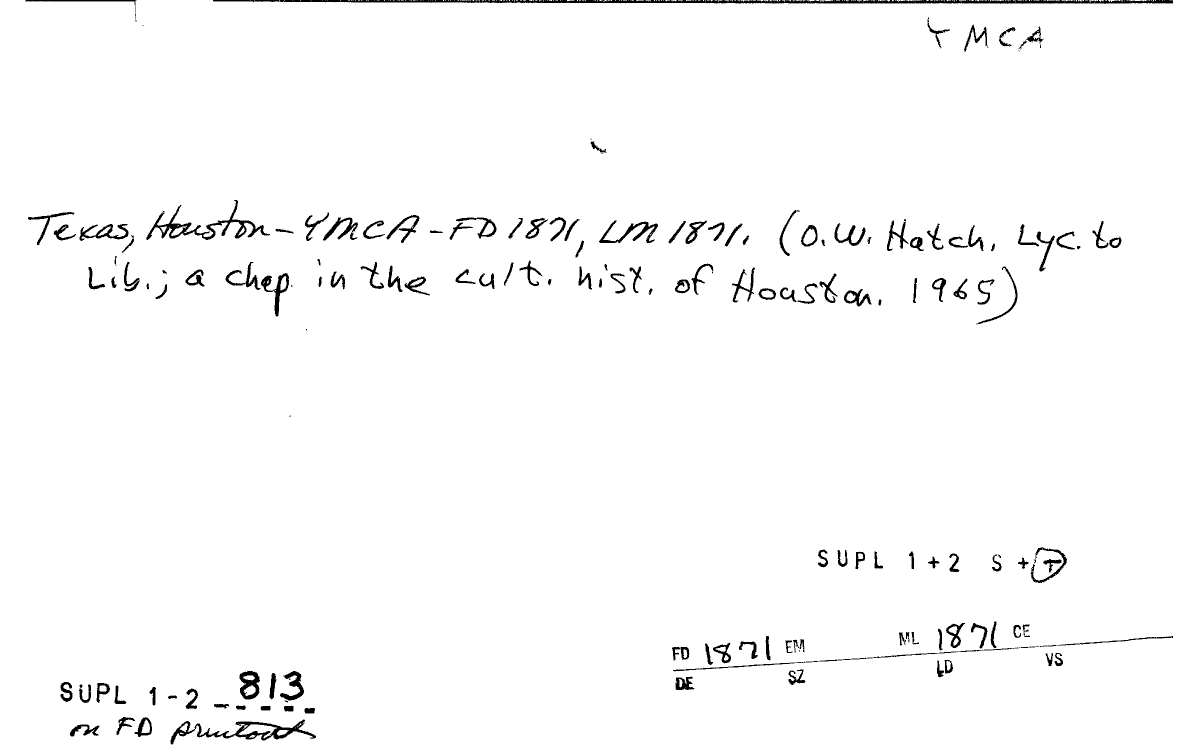 YMCA
Texas, Houston - YMCA - FD 1871, LM 1871. (O.W. Hatch. Lyc. to
Lib.; a chap in the cult. hist. of Houston. 1965)
SUPL 1+2 S+T
FD 1871 EM ML 1871 CE
DE SZ LD VS
SUPL 1-2 813
on FD printout